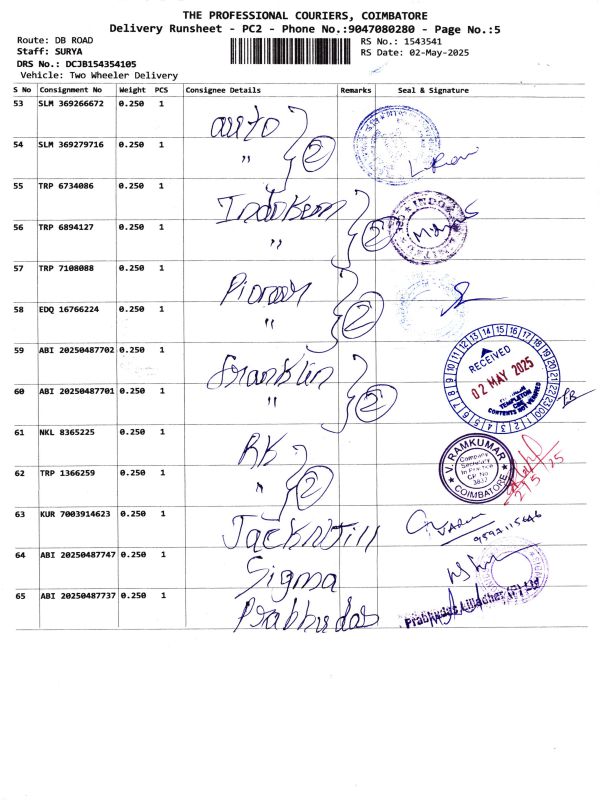 THE PROFESSIONAL COURIERS, COIMBATORE
Delivery Runsheet - PC2 - Phone No.:9047080280 - Page No.:5
Route: DB ROAD
Staff: SURYA
DRS No.: DCJB154354105
Vehicle: Two Wheeler Delivery
RS No.: 1543541
RS Date: 02-May-2025
S No Consignment No Weight PCS Consignee Details Remarks Seal & Signature
53 SLM 369266672 0.250 1 auto
54 SLM 369279716 0.250 1 " 2
55 TRP 6734086 0.250 1 Indokem
56 TRP 6894127 0.250 1 " 2
57 TRP 7108088 0.250 1 Pioneer
58 EDQ 16766224 0.250 1 " 2
59 ABI 20250487702 0.250 1 Franklin
RECEIVED
02 MAY 2025
TEMPLETON
CONTENTS NOT VERIFIED
60 ABI 20250487701 0.250 1 " 2
61 NKL 8365225 0.250 1 RK
V. RAMKUMAR
Company
Secretary
in Practice
CP No
3832
COIMBATORE
2/5/25
62 TRP 1366259 0.250 1 " 2
63 KUR 7003914623 0.250 1 JacknJill
64 ABI 20250487747 0.250 1 Sigma
65 ABI 20250487737 0.250 1 Prabhudas
Prabhudas Lilladher (P) Ltd